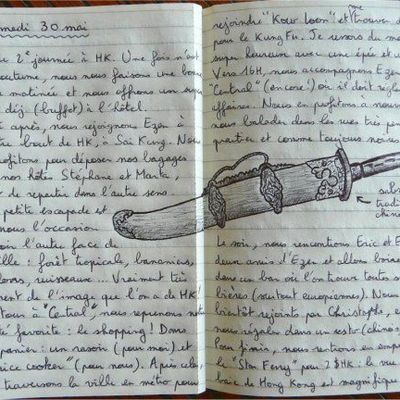 medi 30 mai
2e journée à HK. Une fois n'est
coutume, nous nous faisons une bonne
matinée et nous offrons un super
déj. (buffet) à l'hôtel.
après, nous rejoignons Ezen à
bout de HK, à Sai Kung. Nous
profitons pour déposer nos bagages
nos hôtes Stéphane et Marta,
de repartir dans l'autre sens
petite escapade et
nous l'occasion
voir l'autre face de
ville : forêt tropicale, bananiers,
ruisseaux... Vraiment très
rent de l'image que l'on a de HK!
tour à "Central" nous reprenons notre
té favorite : le shopping! Dans
panier : un rasoir (pour moi) et
rice cooker" (pour nous). Après cela,
traversons la ville en métro pour
rejoindre "Kow Loon" et trouver
pour le Kung Fu. Je ressors du ma
super heureux avec une épée et u
Vers 16H, nous accompagnons Ezen
"Central" (encore!) où il doit régler
affaires. Nous en profitons à nouveau
nous balader dans les rues très pen
quartier et comme toujours noires
sabre
tradi
chinois
Le soir, nous rencontrons Eric et E
deux amis d'Ezen et allons boire
dans un bar où l'on trouve toutes s
bières (surtout européennes). Nous
bientôt rejoints par Christophe, et
nous régalons dans un resto (chinois,
Pour finir, nous rentrons en empr
le "Star Ferry" pour 2$HK : la vue
baie de Hong Kong est magnifique